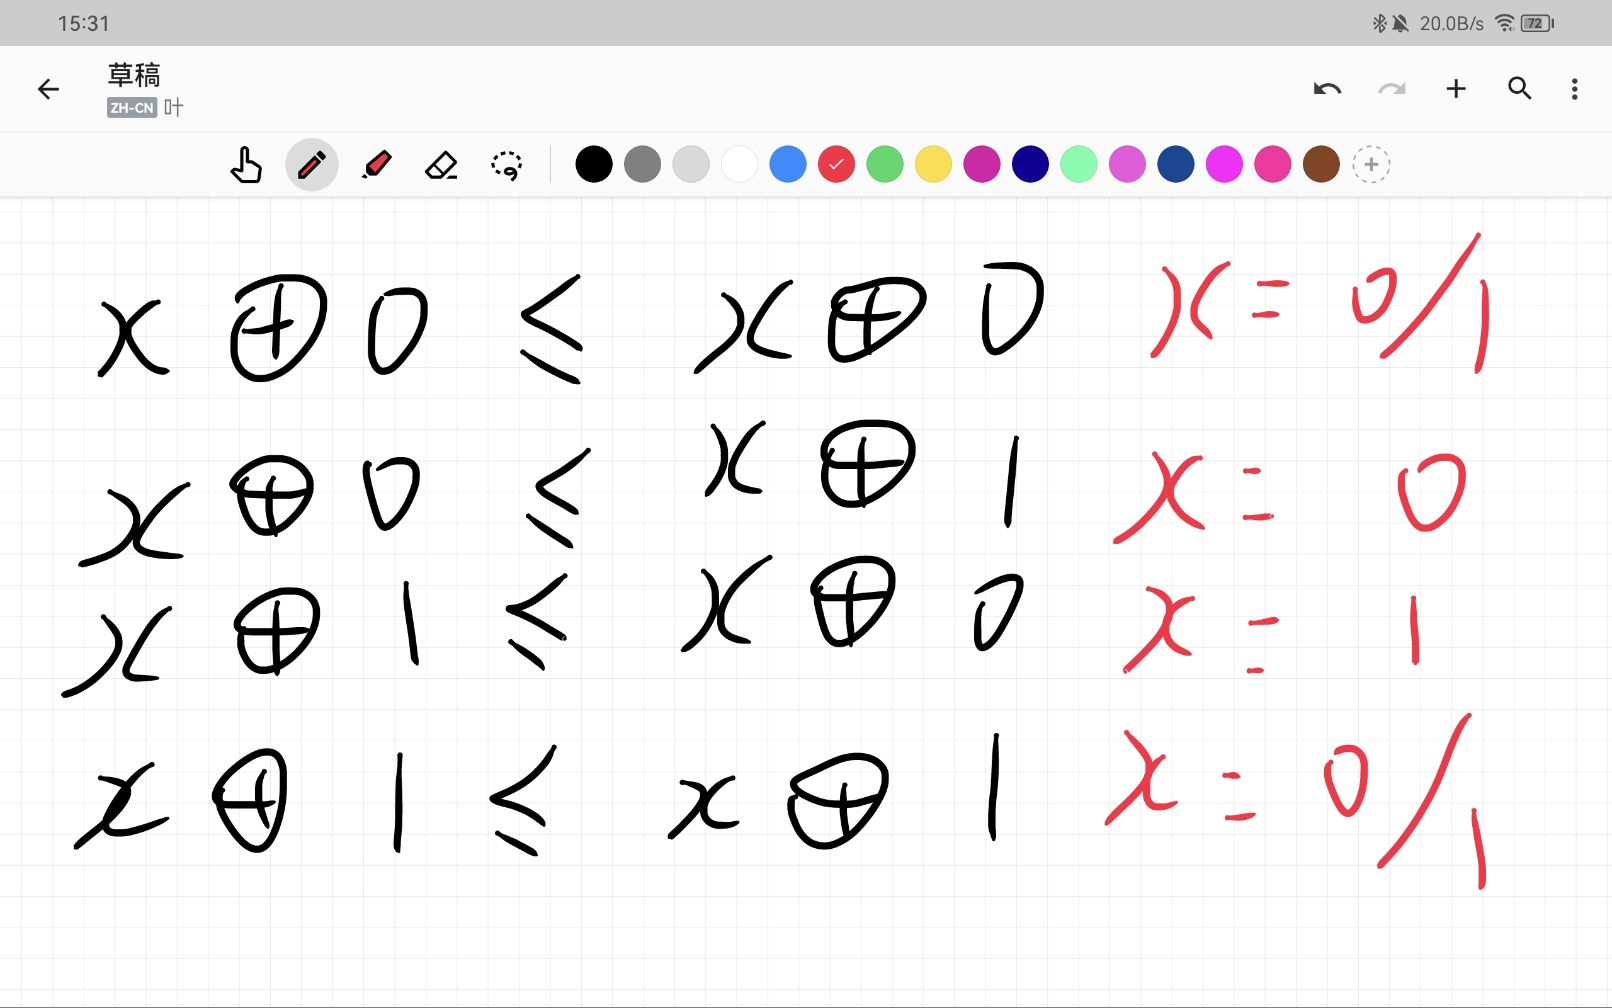 15:31 20.0B/s 72
草稿
ZH-CN 叶
x ⊕ 0 ≤ x ⊕ 0 x = 0/1
x ⊕ 0 ≤ x ⊕ 1 x = 0
x ⊕ 1 ≤ x ⊕ 0 x = 1
x ⊕ 1 ≤ x ⊕ 1 x = 0/1